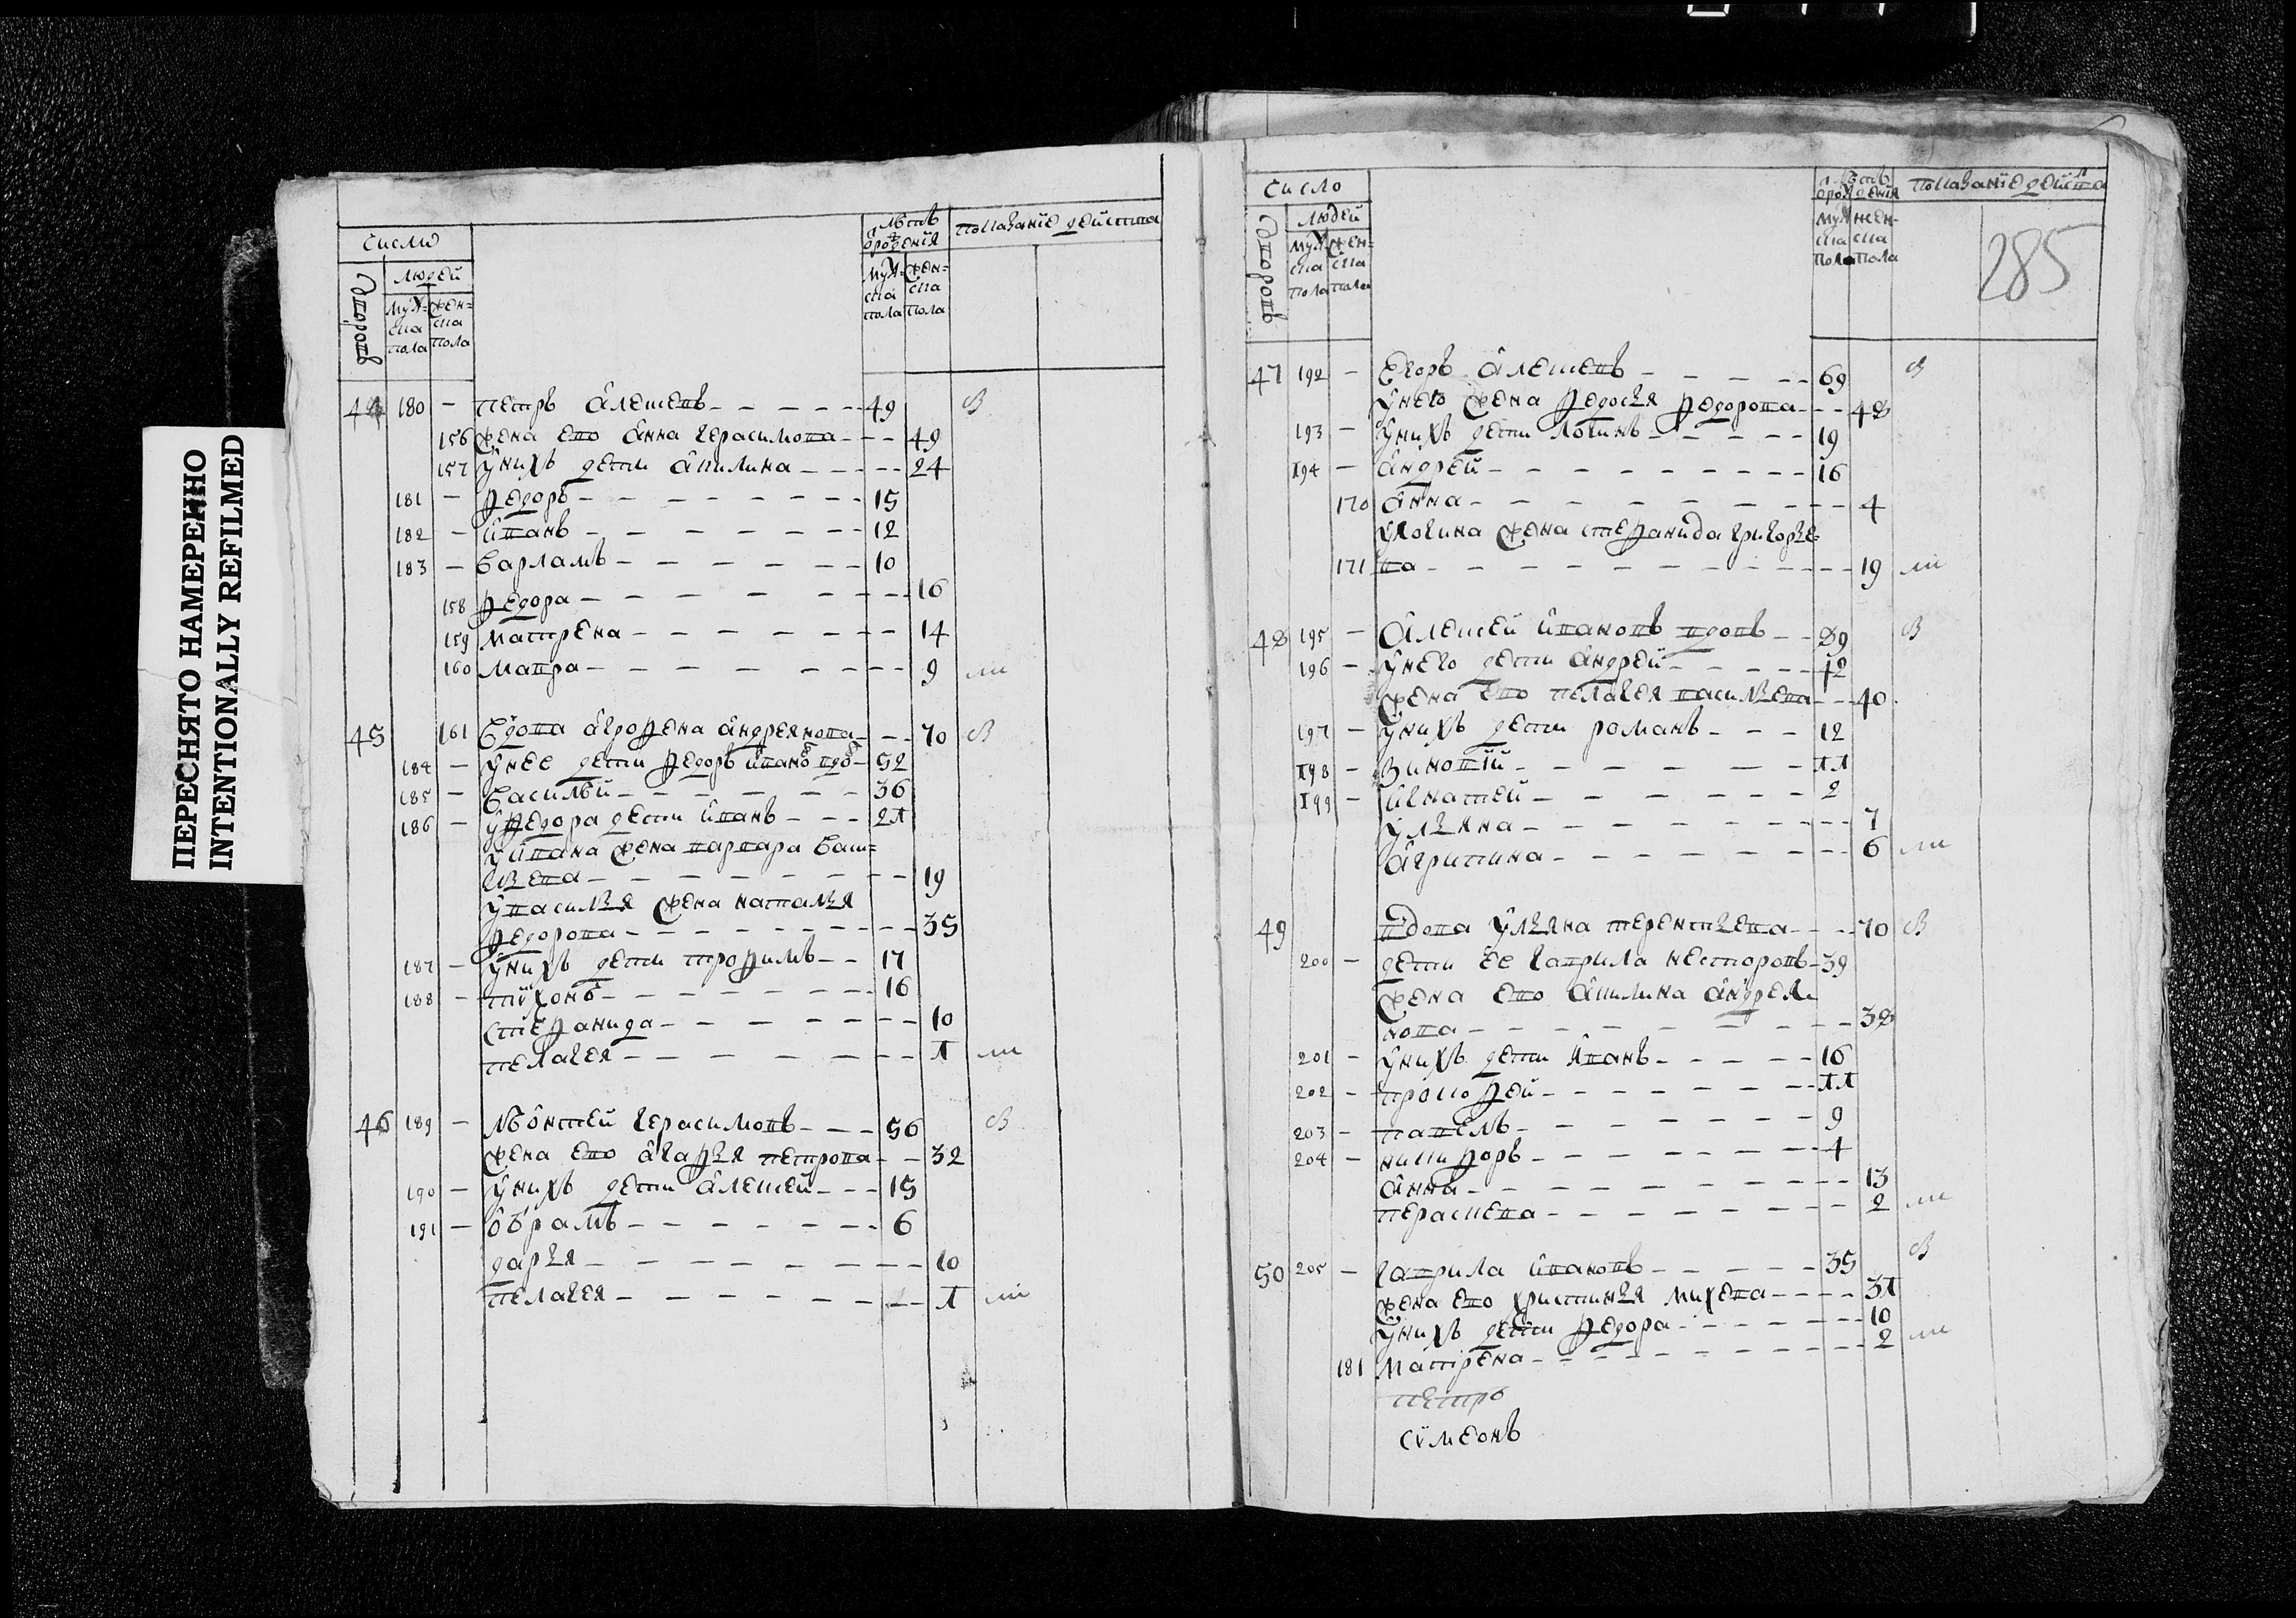 ПЕРЕСНЯТО НАМЕРЕННО
INTENTIONALLY REFILMED
Число
Дворовъ
Людей
Муж-
ска
пола
Жен-
ска
пола
Лѣтъ
Муж-
ска
пола
Жен-
ска
пола
показанїе действа
44 180 – петръ алекѣевъ 49 В
156 жена ево анна герасимова 49
157 у нихъ дети акилина 24
181 – федоръ 15
182 – иванъ 12
183 – варламъ 10
158 федора 16
159 матрена 14
160 мавра 9
45 161 вдова агрофена андреянова 70 В
184 – у нее дети федоръ ивано вдо 52
185 – василѣй 36
186 – у федора дети иванъ 21
у ивана жена варвара васи=
льева 19
у василья жена наталья
федорова 35
187 – у нихъ дети трофимъ 17
188 – тихонъ 16
стефанида 10
пелагея 1
46 189 – леонтей герасимовъ 56 В
жена ево агафья петрова 32
190 – у нихъ дети алексей 15
191 – обрамъ 6
дарья 10
пелагея 1
Число
Дворовъ
Людей
Муж
ска
пола
Жен-
ска
пола
Лѣтъ
Муж
ска
пола
жен-
ска
пола
показанїе действа
285
47 192 – Егоръ алексеевъ 69 В
у него жена федосья федорова 48
193 – у нихъ дети логинъ 19
194 – андрей 16
170 анна 4
у логина жена стефанида григорье-
171 ва 19
48 195 – Алексей ивановъ вдовъ 89 В
196 – у него дети андрей 42
жена ево пелагея васильева 40
197 – у нихъ дети романъ 12
198 – зиновїй 11
199 – игнатей 2
ульяна 7
агрипина 6
49 вдова ульяна терентьева 70 В
200 – дети ее гаврила несторовъ 39
жена ево акилина андрея
нова 38
201 – у нихъ дети иванъ 16
202 – прокофей 11
203 – павелъ 9
204 – никифоръ 4
анна 13
пераскева 2
50 205 – гаврила ивановъ 35 В
жена ево христинья михева 31
у нихъ дети федора 10
181 матрена 2
петръ
сѵмеонъ